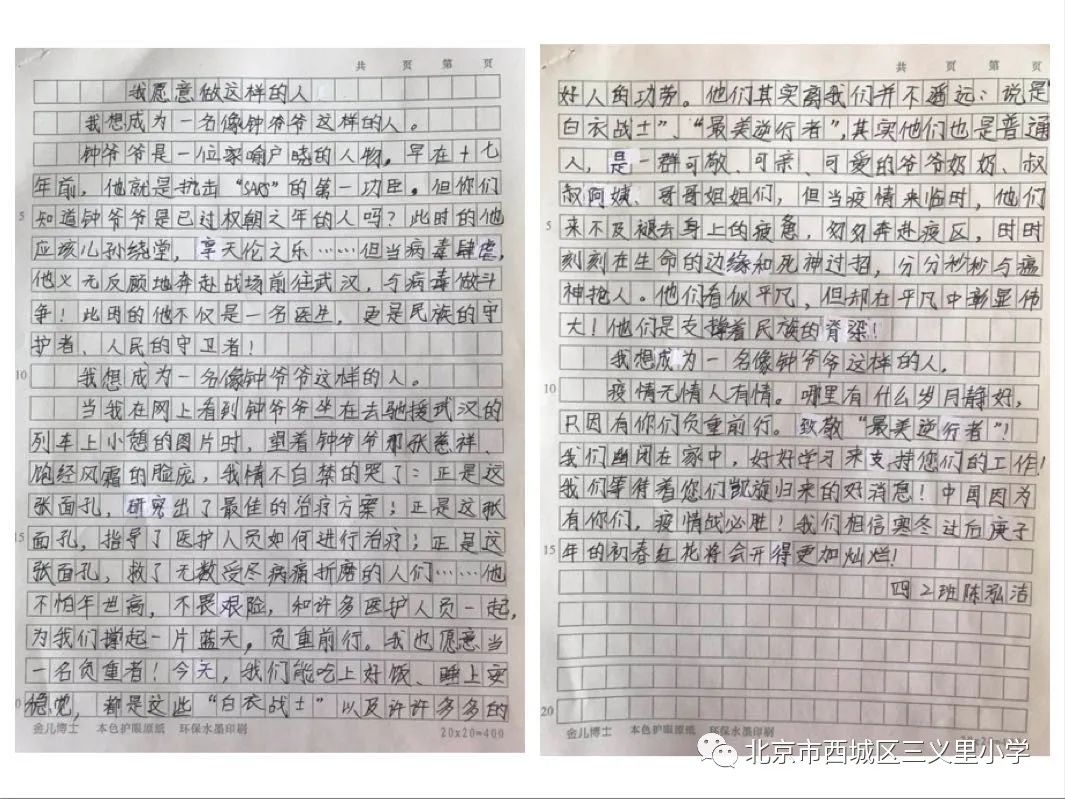 共 页 第 页
我愿意做这样的人
我想成为一名像钟爷爷这样的人。
钟爷爷是一位家喻户晓的人物。早在十七
年前，他就是抗击“SARS”的第一功臣。但你们
5 知道钟爷爷是已过杖朝之年的人吗？此时的他
应该儿孙绕堂，享天伦之乐……但当病毒肆虐，
他义无反顾地奔赴战场前往武汉，与病毒做斗
争！此时的他不仅是一名医生，更是民族的守
护者、人民的守卫者！
10 我想成为一名像钟爷爷这样的人。
当我在网上看到钟爷爷坐在去驰援武汉的
列车上小憩的图片时，望着钟爷爷那张慈祥、
饱经风霜的脸庞，我情不自禁的哭了：正是这
张面孔，研究出了最佳的治疗方案；正是这张
15 面孔，指导了医护人员如何进行治疗；正是这
张面孔，救了无数受尽病痛折磨的人们……他
不怕年世高，不畏艰险，和许多医护人员一起，
为我们撑起一片蓝天，负重前行。我也愿意当
一名负重者！今天，我们能吃上好饭、睡上安
0 稳觉，都是这些“白衣战士”以及许许多多的
金儿博士 本色护眼原纸 环保水墨印刷 20x20=400
共 页 第 页
好人的功劳。他们其实离我们并不遥远：说是
白衣战士”、“最美逆行者”，其实他们也是普通
人，是一群可敬、可亲、可爱的爷爷奶奶、叔
叔阿姨、哥哥姐姐们，但当疫情来临时，他们
5 来不及褪去身上的疲惫，匆匆奔赴疫区，时时
刻刻在生命的边缘和死神过招，分分秒秒与瘟
神抢人。他们看似平凡，但却在平凡中彰显伟
大！他们是支撑着民族的脊梁！
我想成为一名像钟爷爷这样的人。
10 疫情无情人有情。哪里有什么岁月静好，
只因有你们负重前行。致敬“最美逆行者”！
我们幽闭在家中，好好学习来支持您们的工作！
我们等待着您们凯旋归来的好消息！中国因为
有你们，疫情战必胜！我们相信寒冬过后庚子
15 年的初春红花将会开得更加灿烂！
四2班陈泓洁
20
金儿博士 本色护眼原纸 环保水墨印刷
北京市西城区三义里小学